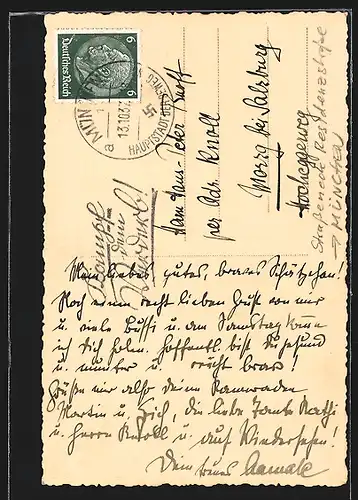 Deutsches Reich
6 6
MÜN
13.10.3
a
HAUPTSTADT DER
Herrn Hans-Peter
per Adr. Knoll
Morzg bei Salzburg
Straßenecke Residenzstraße
→ MÜNCHEN
Mein liebes, gutes, braves Schätzchen!
Noch einen recht lieben Gruß von mir
u. viele Bussi u. am Samstag komme
ich Dich holen. Hoffentl. bist Du gesund
u. munter u. recht brav!
Grüße mir alle deine Kameraden
Martin u. die liebe Tante Kathi
u. Herrn Knoll u. auf Wiedersehen!
Dein treues Mamale